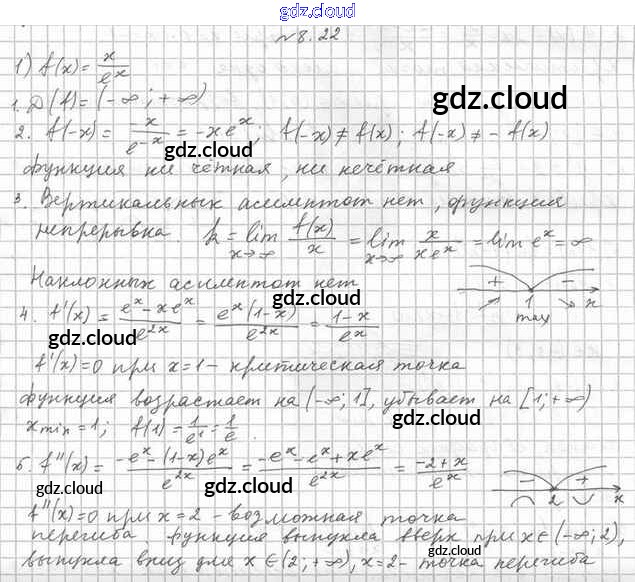 gdz.cloud
№8.22
1) f(x) = x/e^x
gdz.cloud
1. D(f) = (-∞; +∞)
2. f(-x) = -x/e^(-x) = -xe^x; f(-x) ≠ f(x); f(-x) ≠ -f(x)
gdz.cloud
gdz.cloud
функция ни чётная, ни нечётная
3. Вертикальных асимптот нет, функция
непрерывна. k = lim x→∞ f(x)/x = lim x→∞ x/(xe^x) = lim e^x = ∞
gdz.cloud
gdz.cloud
Наклонных асимптот нет
+ − 1 max x
4. f'(x) = (e^x - xe^x)/e^(2x) = e^x(1-x)/e^(2x) = (1-x)/e^x
gdz.cloud
gdz.cloud
f'(x) = 0 при x = 1 - критическая точка
функция возрастает на (-∞; 1], убывает на [1; +∞)
x min = 1; f(1) = 1/e^1 = 1/e.
gdz.cloud
gdz.cloud
5. f''(x) = (-e^x - (1-x)e^x)/e^(2x) = (-e^x - e^x + xe^x)/e^(2x) = (-2+x)/e^x
− + 2 x
gdz.cloud
gdz.cloud
f''(x) = 0 при x = 2 - возможная точка
перегиба. функция выпукла вверх при x∈(-∞; 2),
выпукла вниз для x∈(2; +∞), x = 2 - точка перегиба
gdz.cloud
gdz.cloud